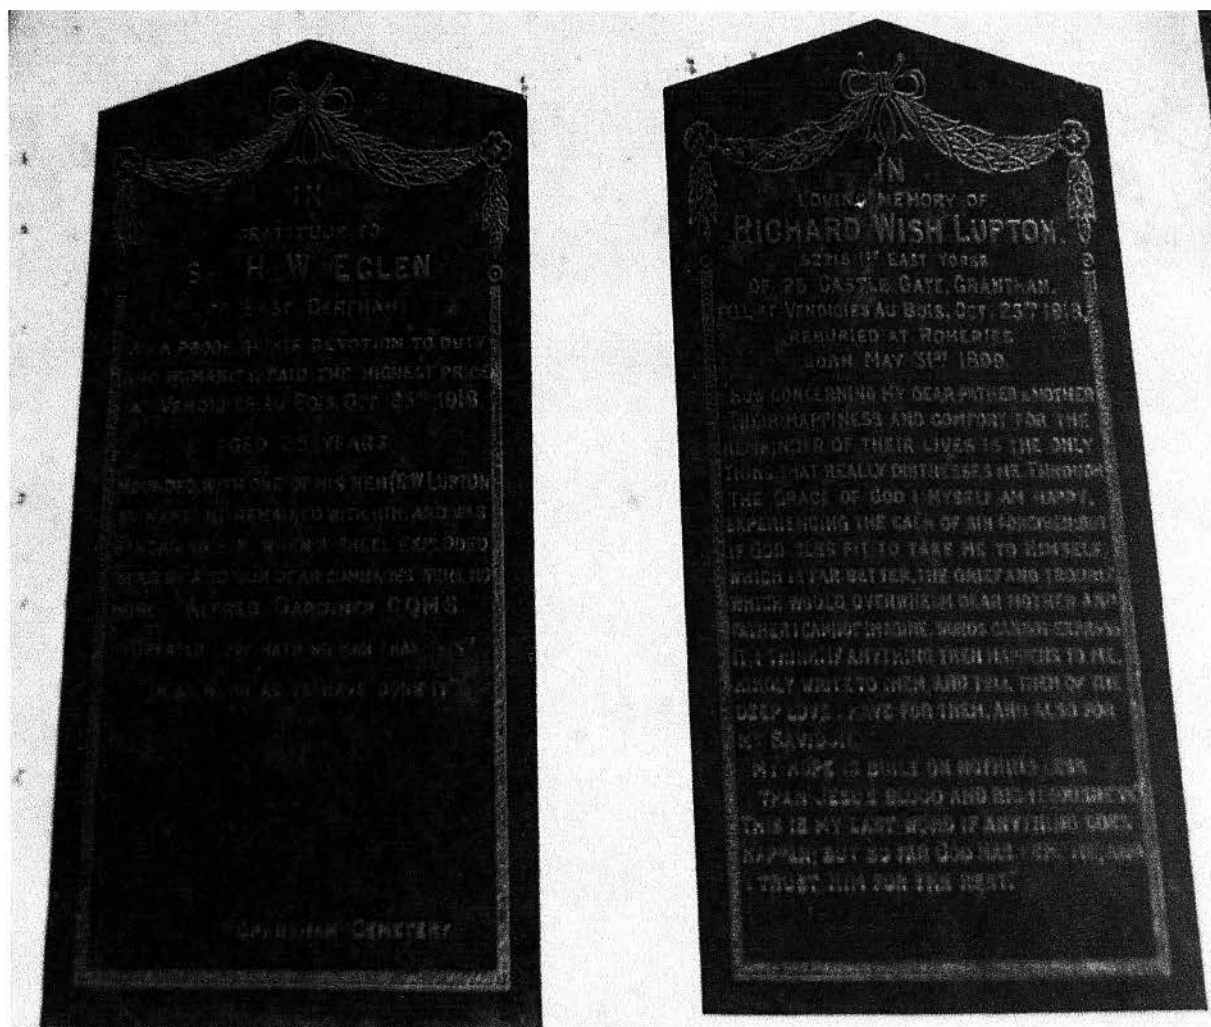 IN
GRATITUDE TO
H. W. EGLEN
EAST DEREHAM
AS A PROOF OF HIS DEVOTION TO DUTY
AND HUMANITY, PAID THE HIGHEST PRICE
AT VENDIGIES AU BOIS, OCT 23RD 1918
AGED YEARS
WOUNDED WITH ONE OF HIS MEN (R.W LUPTON
HE REMAINED WITH HIM, AND WAS
WHEN A SHELL EXPLODED
OUR DEAR COMRADES WERE NO
MORE. ALFRED GARDINER C.Q.M.S.
"GREATER LOVE HATH NO MAN THAN THIS"
"IN AS MUCH AS YE HAVE DONE IT"
GRANTHAM CEMETERY
IN
LOVING MEMORY OF
RICHARD WISH LUPTON,
52215 1ST EAST YORKS
OF 25 CASTLE GATE, GRANTHAM,
FELL AT VENDIGIES AU BOIS, OCT. 23RD 1918,
REBURIED AT ROMERIES
BORN MAY 31ST 1899.
NOW CONCERNING MY DEAR FATHER & MOTHER
THEIR HAPPINESS AND COMFORT FOR THE
REMAINDER OF THEIR LIVES IS THE ONLY
THING THAT REALLY DISTRESSES ME. THROUGH
THE GRACE OF GOD I MYSELF AM HAPPY,
EXPERIENCING THE CALM OF SIN FORGIVEN BUT
IF GOD SEES FIT TO TAKE ME TO HIMSELF,
WHICH IS FAR BETTER, THE GRIEF AND TROUBLE
WHICH WOULD OVERWHELM DEAR MOTHER AND
FATHER I CANNOT IMAGINE. WORDS CANNOT EXPRESS
IT, I THINK. IF ANYTHING THEN HAPPENS TO ME,
KINDLY WRITE TO THEM, AND TELL THEM OF THE
DEEP LOVE I HAVE FOR THEM, AND ALSO FOR
MY SAVIOUR.
MY HOPE IS BUILT ON NOTHING LESS
THAN JESU'S BLOOD AND RIGHTEOUSNESS
THIS IS MY LAST WORD IF ANYTHING DOES
HAPPEN; BUT SO FAR GOD HAS KEPT ME, AND
I TRUST HIM FOR THE REST."